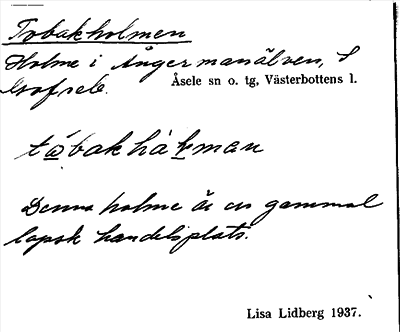 Tobakholmen
Holme i Ångermanälven, S
Gafsele.
Åsele sn o. tg, Västerbottens l.
tåbakhåḷman
Denna holme är en gammal
lapsk handelsplats.
Lisa Lidberg 1937.